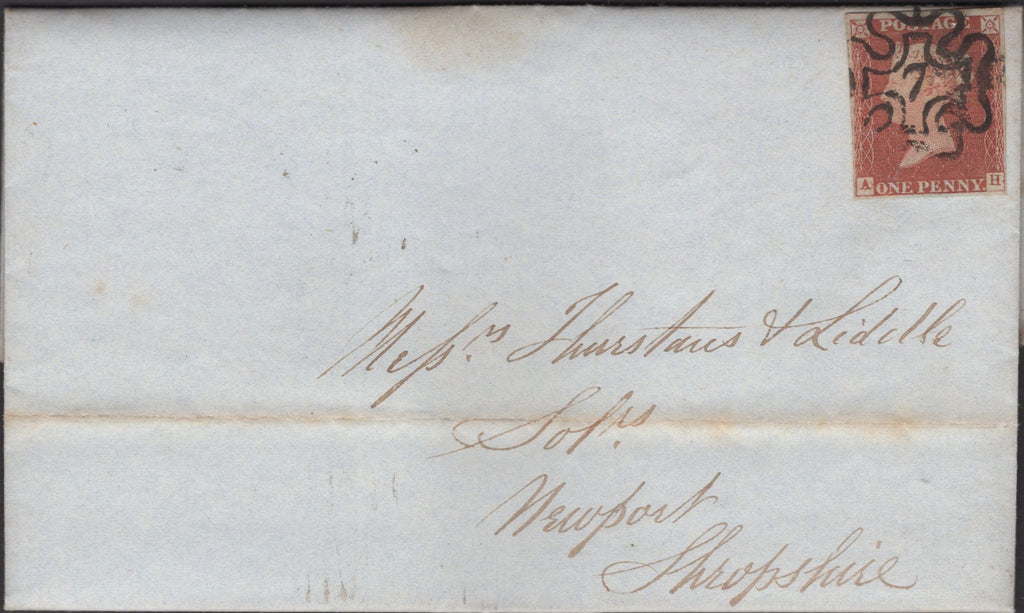 POSTAGE
7
A ONE PENNY. H
Messrs Thurstans & Liddle
Solrs
Newport
Shropshire